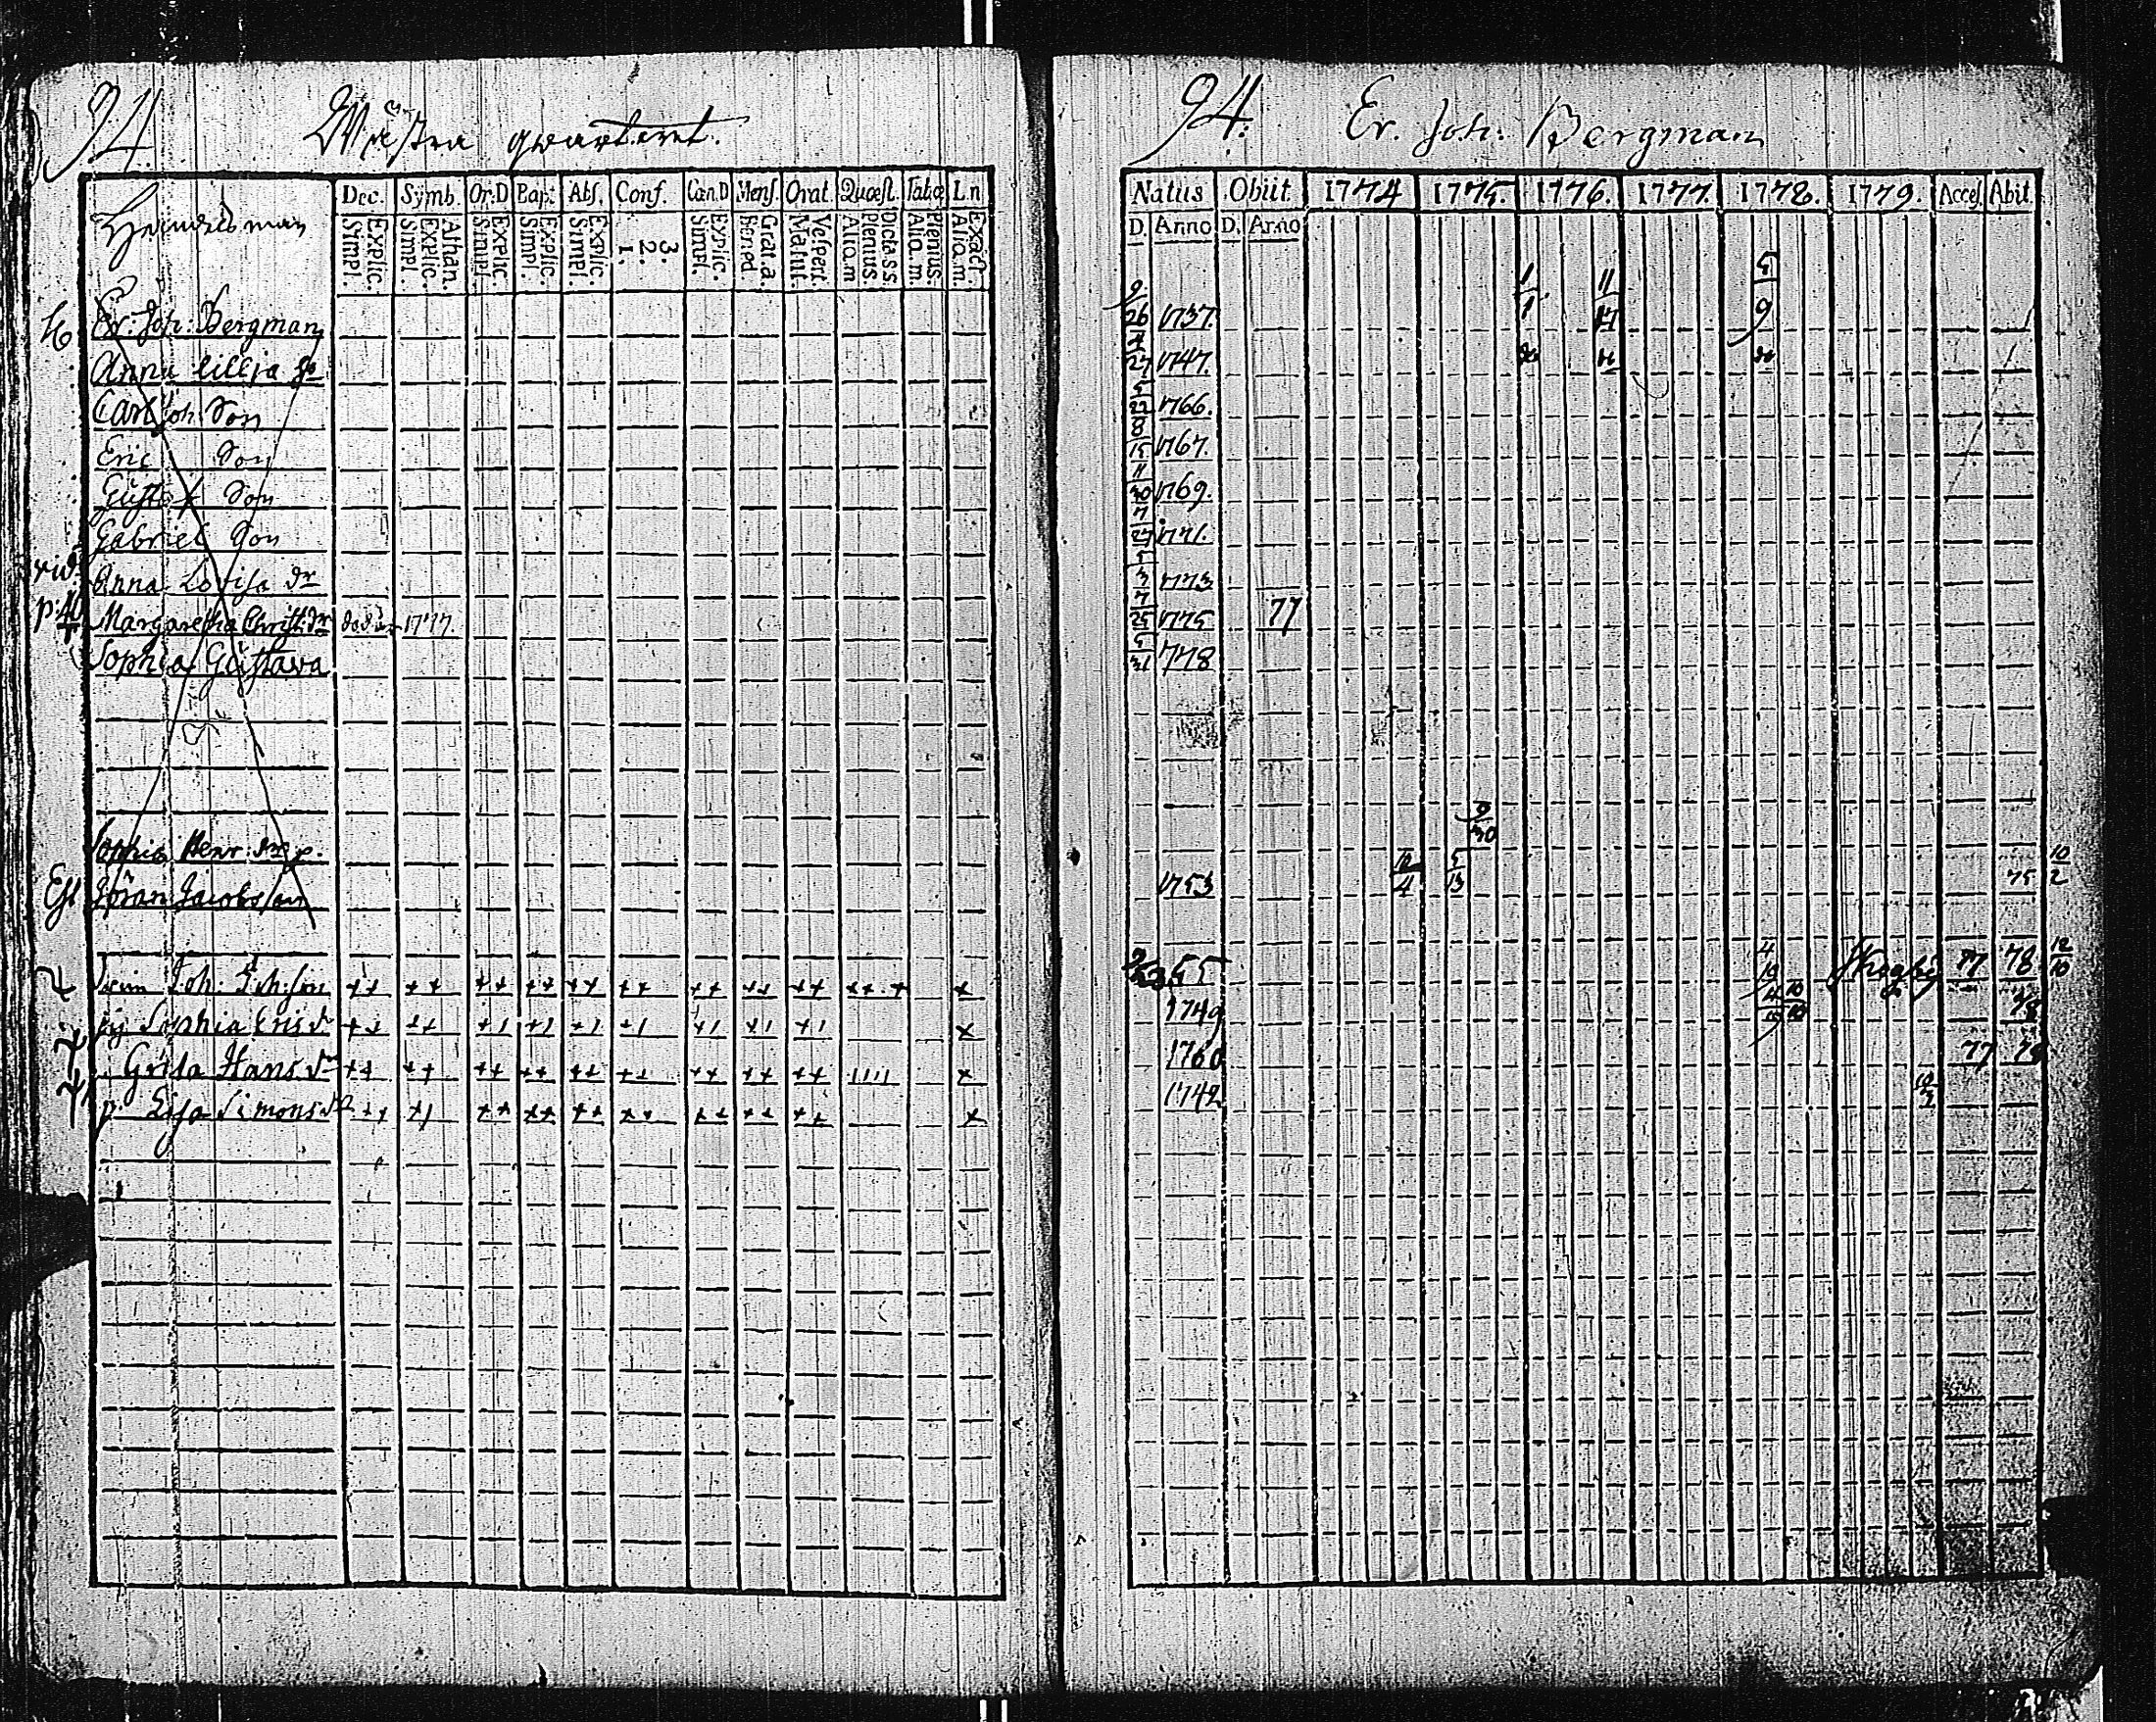 94.
Wästra qwarteret.
Dec. Symb. Or.D Bapt. Abs. Conf. Cæn.D Mens. Orat. Quæst. Tabœ Ln
Explic. Simpl. Athan. Explic. Simpl. Explic. Simpl. Explic. Simpl. Explic. Simpl. 3. 2. 1. Explic. Simpl. Grat.a. Bened. Vespert. Matut. Dicta.s.s. Plenius Aliq.m Plenius Aliq.m Exact. Aliq.m
Er: Joh: Bergman
Anna Lillja
Carl Joh: Son
Eric Son
Gustaf Son
Gabriel Son
Anna Lovisa dr
Margaretha Christ: dr död 1777.
Sophia Gustava
Sophia Henr: dr p.
Göran Jacobsson
Joh:
Sophia Erisdr
Greta Hansdr
p Lisa Simonsdr
94.
Er. Joh: Bergman
Natus Obiit 1774 1775. 1776. 1777. 1778. 1779. Acces. Abit.
D. Anno D. Anno
9/26 1737. 1/1 11/17 5/9
4/27 1747.
5/22 1766.
8/15 1767.
11/30 1769.
7/27 1771.
1/3 1773
7/25 1775 77
5/31 778
9/30
1753 10/4 5/13 75 10/2
55 4/19 Skogby 77 78 12/10
1749 10/10 78
1760 77 78
1742